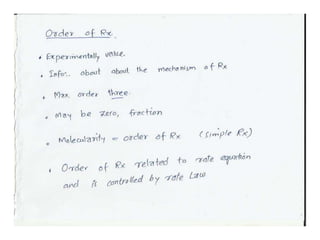 Order of Rx.
• Experimentally value.
• Info:. about about the mechanism of Rx
• Max. order three.
• may be zero, fraction
• Molecularity = order of Rx (simple Rx)
• Order of Rx related to rate equation
and is controlled by rate Law